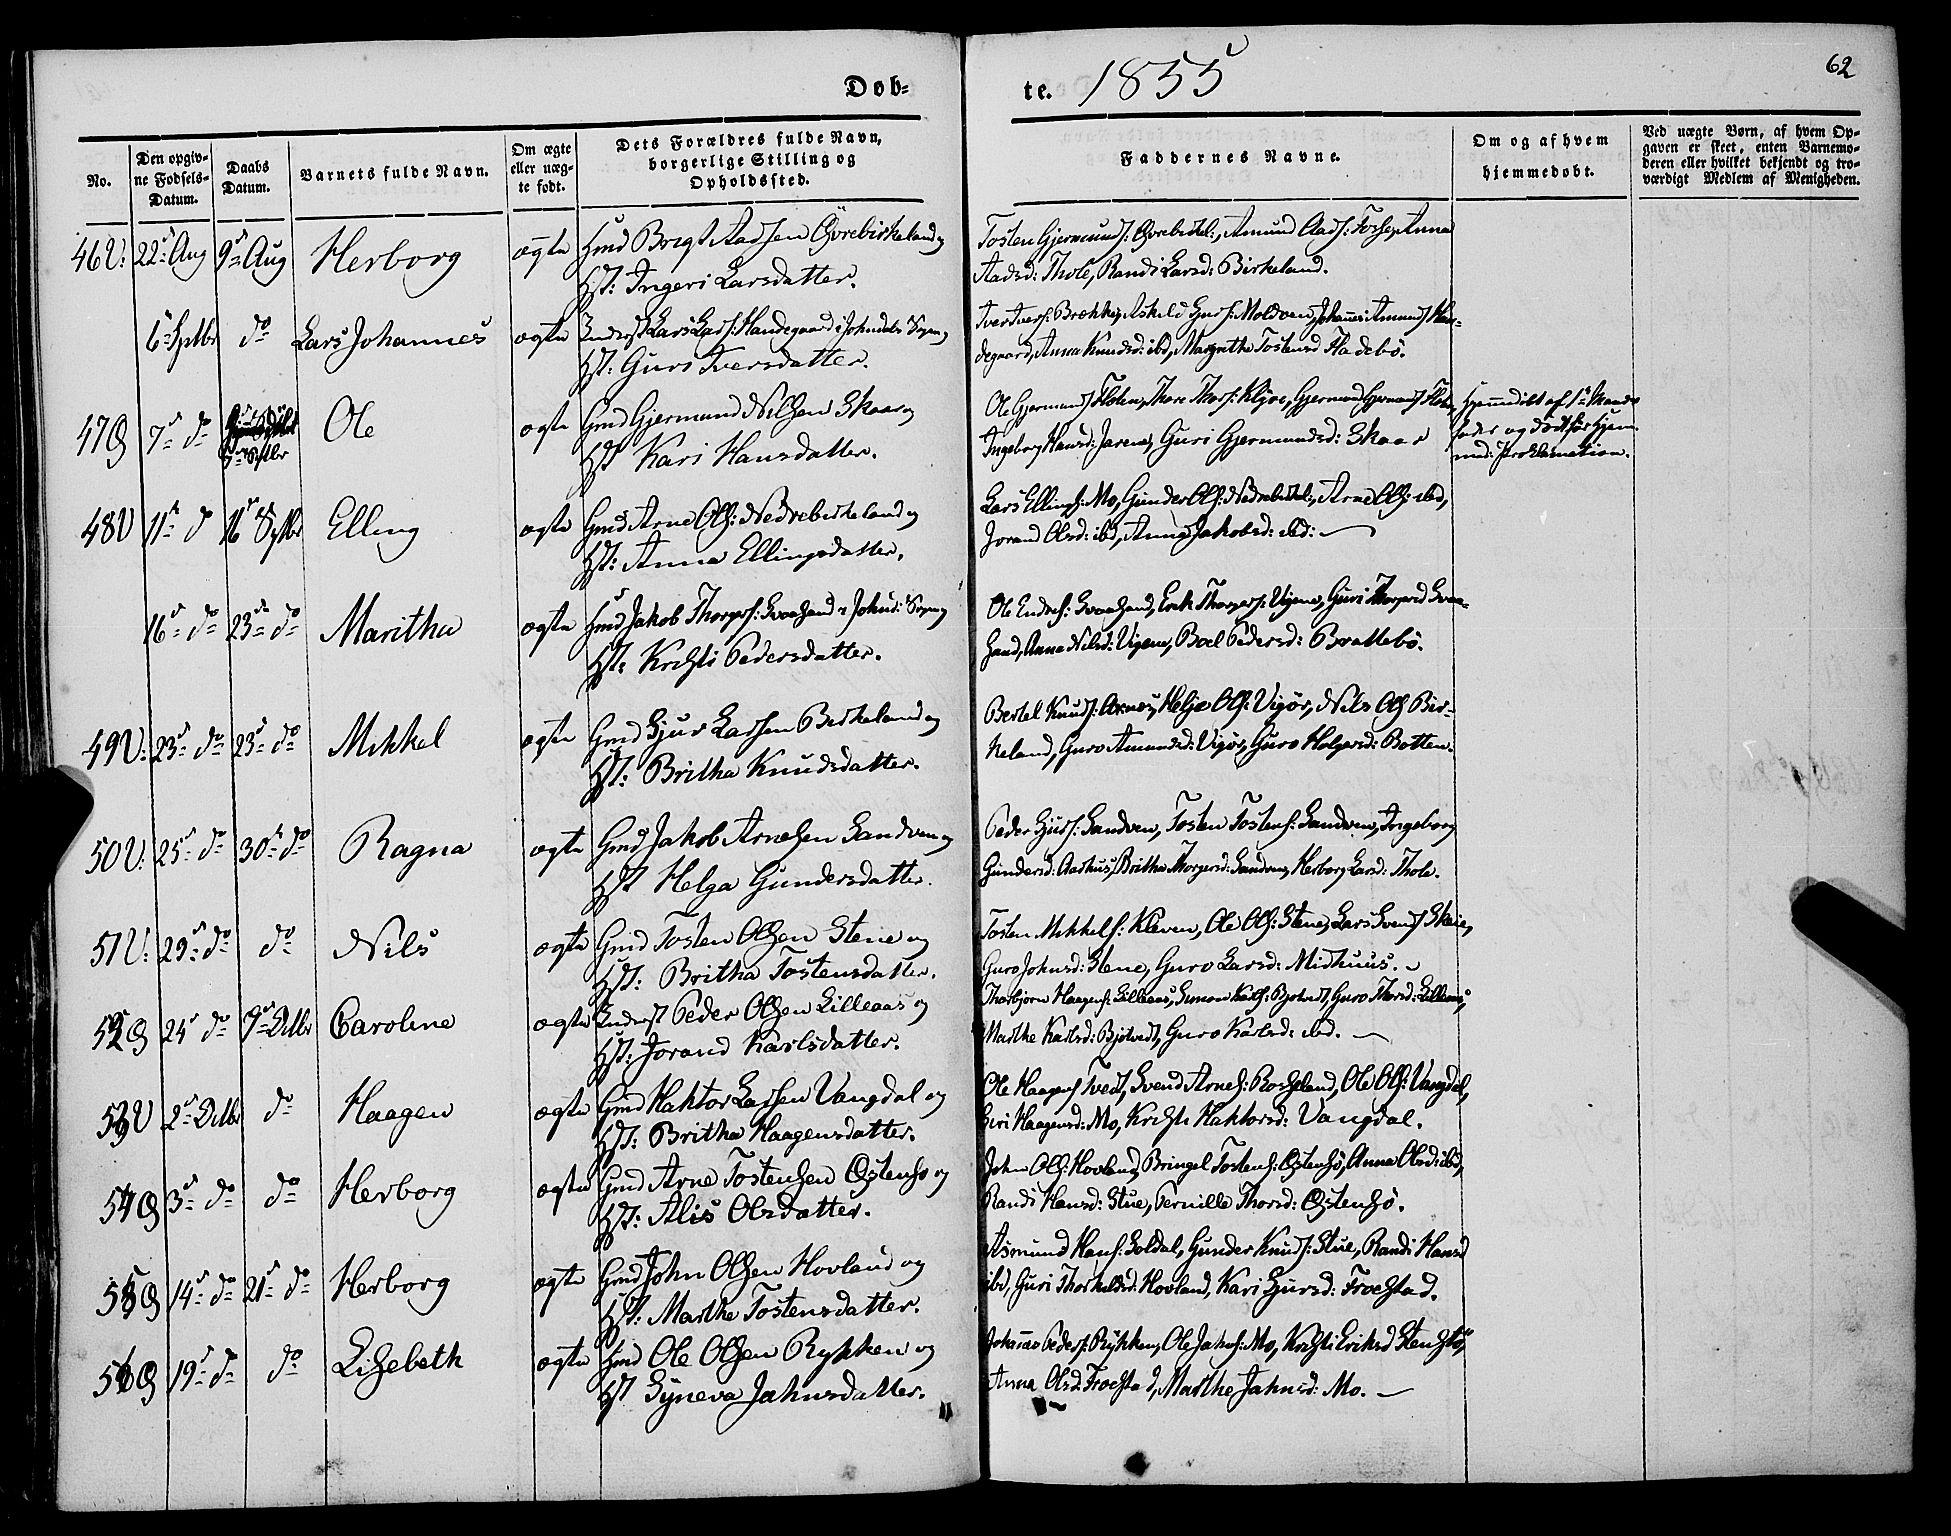 62
Døb-
te. 1855
No.
Den opgiv-
ne Fødsels-
Datum.
Daabs
Datum.
Barnets fulde Navn.
Om ægte
eller uæg-
te født.
Dets Forældres fulde Navn,
borgerlige Stilling og
Opholdssted.
Faddernes Navne.
Om og af hvem
hjemmedøbt.
Ved uægte Børn, af hvem Op-
gaven er skeet, enten Barnemo-
deren eller hvilket bekjendt og tro-
værdigt Medlem af Menigheden.
46 V: 22 Aug 9 Aug Herborg ægte Gmd Brigt Aadsen Øvrebirkeland og
Hst: Ingeri Larsdatter.
Tosten Gjermunds: Øvrebirkel:, Amund Aads: Fosse, Anna
Aadsd: Thole, Randi Larsd: Birkeland.
6 Sptbr do Lars Johannes ægte Inderst Lars Lars: Handegaard i Johndals Sogn og
Hst: Guri Iversdatter.
Iver Ivers: Brække, Askild Gurs: Moldven, Johannes Amunds Han-
degaard, Anna Knudsd: ibd, Margrethe Tostensd Fladebø.
47 Ø 7 do Sptbr Ole ægte Gmd Gjermund Nilssen Skaar og
Hst Kari Hansdatter.
Ole Gjermunds Floten, Thore Thors: Kljve, Gjermund Gjermunds Flot,
Ingeborg Hansd: Jarenes, Guri Gjermundsd: Skaar
Hjemmedøbt af
fader og død før Hjem-
med: Proklamation.
48 V 11 d 16 Sptbr Elling ægte Gmd Arne Ols: Nedrebirkeland og
Hst: Anna Ellingsdatter.
Lars Ellings: Mo, Gunder Ols: Nedrebirkel:, Arne Ols: ibd,
Jorand Olsd: ibd, Anna Jakobsd: ibd:
16 do 23 do Maritha ægte Gmd Jakob Thorgers: Svaasand i Johnd: Sogn og
Hst: Kristi Pedersdatter.
Ole Endres: Svaasand, Erik Thorgers: Vigene, Guri Thorgersd Svaa-
sand, Anna Nilsd: Vigene, Boel Pedersd: Brattebø.
49 V: 23 do 23 do Mikkel ægte Gmd Sjur Larssen Birkeland og
Hst: Britha Knudsdatter.
Bertel Knuds: Axnes, Helje Ols: Vigør, Nils Ols Bir-
keland, Guro Amundsd: Vigør, Guro Holgersd: Botten.
50 V: 25 do 30 do Ragna ægte Gmd Jakob Arnesen Sandven og
Hst Helga Gundersdatter.
Peder Sjurs: Sandven, Tosten Tostens: Sandven, Ingeborg
Gundersd: Aarhus, Britha Thorgersd: Sandven, Herborg Larsd: Thole.
51 V: 29 do do Nils ægte Gmd Tosten Olssen Stene og
Hst: Britha Tostensdatter.
Tosten Mikkels: Kleven, Ole Ols: Stene, Lars Svends Skeie,
Guro Johnsd: Stene, Guro Larsd: Midhuus.
52 Ø 24 do 7 Octbr Caroline ægte Inderst Peder Olssen Lilleaas og
Hst: Jorand Karlsdatter.
Thorbjørn Haagens: Lilleaas, Simon Karls: Bjotvedt, Guro Thorsd: Lilleaas,
Marthe Karlsd: Bjotvedt, Guro Karlsd: ibd.
53 V 2 Octbr do Haagen ægte Gmd Haktor Larssen Vangdal og
Hst: Britha Haagensdatter.
Ole Haagens Tvedt, Svend Arnes: Rosseland, Ole Ols: Vangdal,
Siri Haagensd: Mo, Kristi Haktorsd: Vangdal.
54 Ø 3 do do Herborg ægte Gmd Arne Tostenssen Østensø og
Hst: Alis Olsdatter.
John Ols: Hovland, Bringel Tostens: Østensø, Anna Olsd: ibd,
Randi Hansd: Stue, Pernille Thorsd: Østensø.
55 Ø 14 do 21 do Herborg ægte Gmd John Olssen Hovland og
Hst: Marthe Tostensdatter.
Asmund Hans: Soldal, Gunder Knuds: Stue, Randi Hansd
ibd, Guri Thorkildsd: Hovland, Kari Sjursd: Froestad.
56 Ø 19 d do Lisebeth ægte Gmd Ole Olssen Rykken og
Hst Syneva Jahnsdatter.
Johannes Peders: Rykken, Ole Jahns: Mo, Kristi Eriksd Stenstø,
Anna Olsd Froestad, Marthe Jahnsd: Mo.